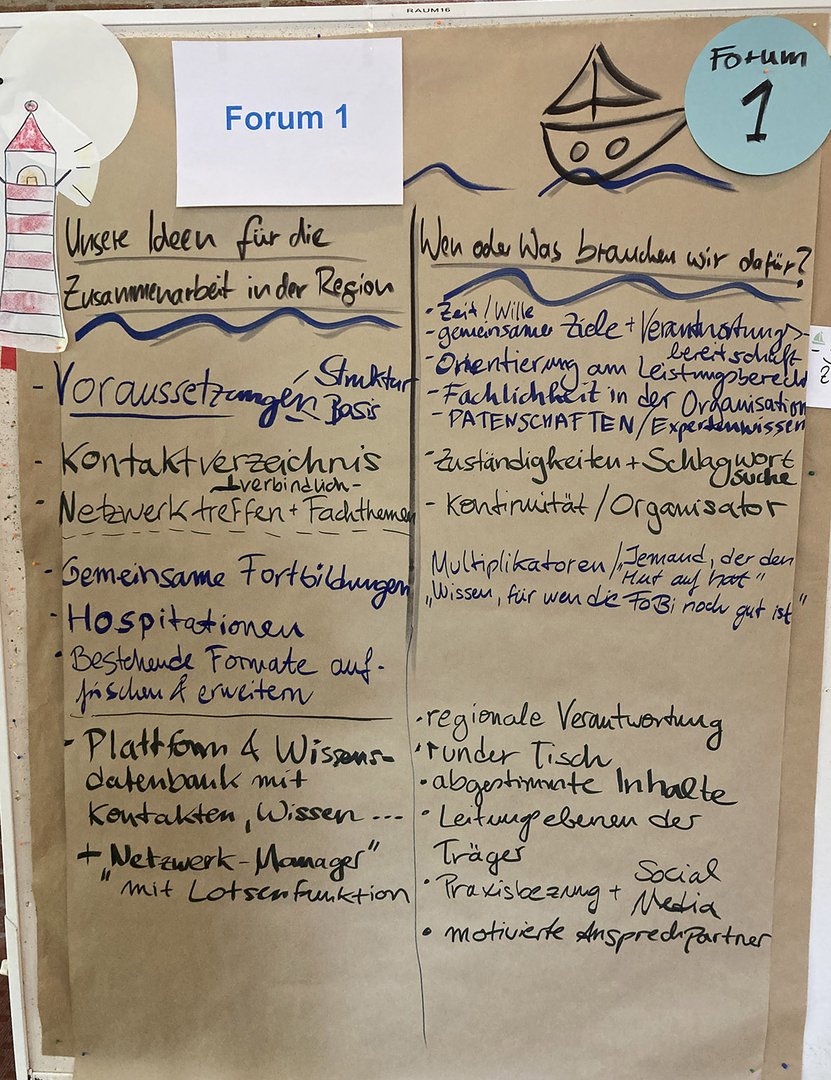 RAUM16
Forum 1
Forum
1
Unsere Ideen für die
Zusammenarbeit in der Region
- Voraussetzungen
Struktur
Basis
- Kontaktverzeichnis
verbindlich
- Netzwerktreffen + Fachthemen
- Gemeinsame Fortbildungen
- Hospitationen
• Bestehende Formate auf-
frischen & erweitern
- Plattform & Wissens-
datenbank mit
Kontakten, Wissen ...
+ „Netzwerk-Manager"
" mit Lotsenfunktion
Wen oder Was brauchen wir dafür?
- Zeit / Wille
- gemeinsame Ziele + Verantwortungs-
bereitschaft
- Orientierung am Leistungsberecht
- Fachlichkeit in der Organisation
- PATENSCHAFTEN / Expertenwissen
- Zuständigkeiten + Schlagwort
suche
- Kontinuität / Organisator
Multiplikatoren / „Jemand, der den
Hut auf hat"
„Wissen, für wen die FoBi noch gut ist"
• regionale Verantwortung
• runder Tisch
• abgestimmte Inhalte
• Leitungsebenen der
Träger
• Praxisbezung + Social
Media
• motivierte Ansprechpartner